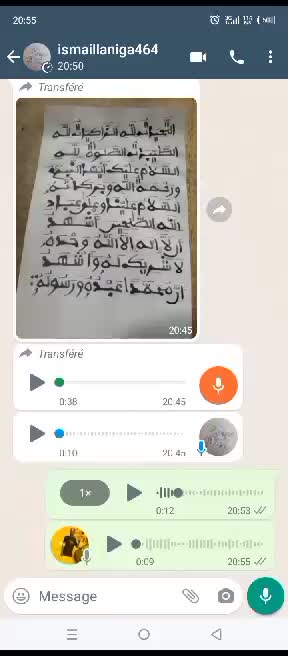 20:55
ismaillaniga464
20:50
Transféré
التحيات لله الزاكيات لله
الطيبات الصلوات لله
السلام عليك أيها النبيء
ورحمة الله وبركاته
السلام علينا وعلى عباد
الله الصالحين أشهد
أن لا إله إلا الله وحده
لا شريك له وأشهد
أن محمدا عبده ورسوله
20:45
Transféré
0:38 20:45
0:10
1×
0:12 20:53
0:09 20:55
Message